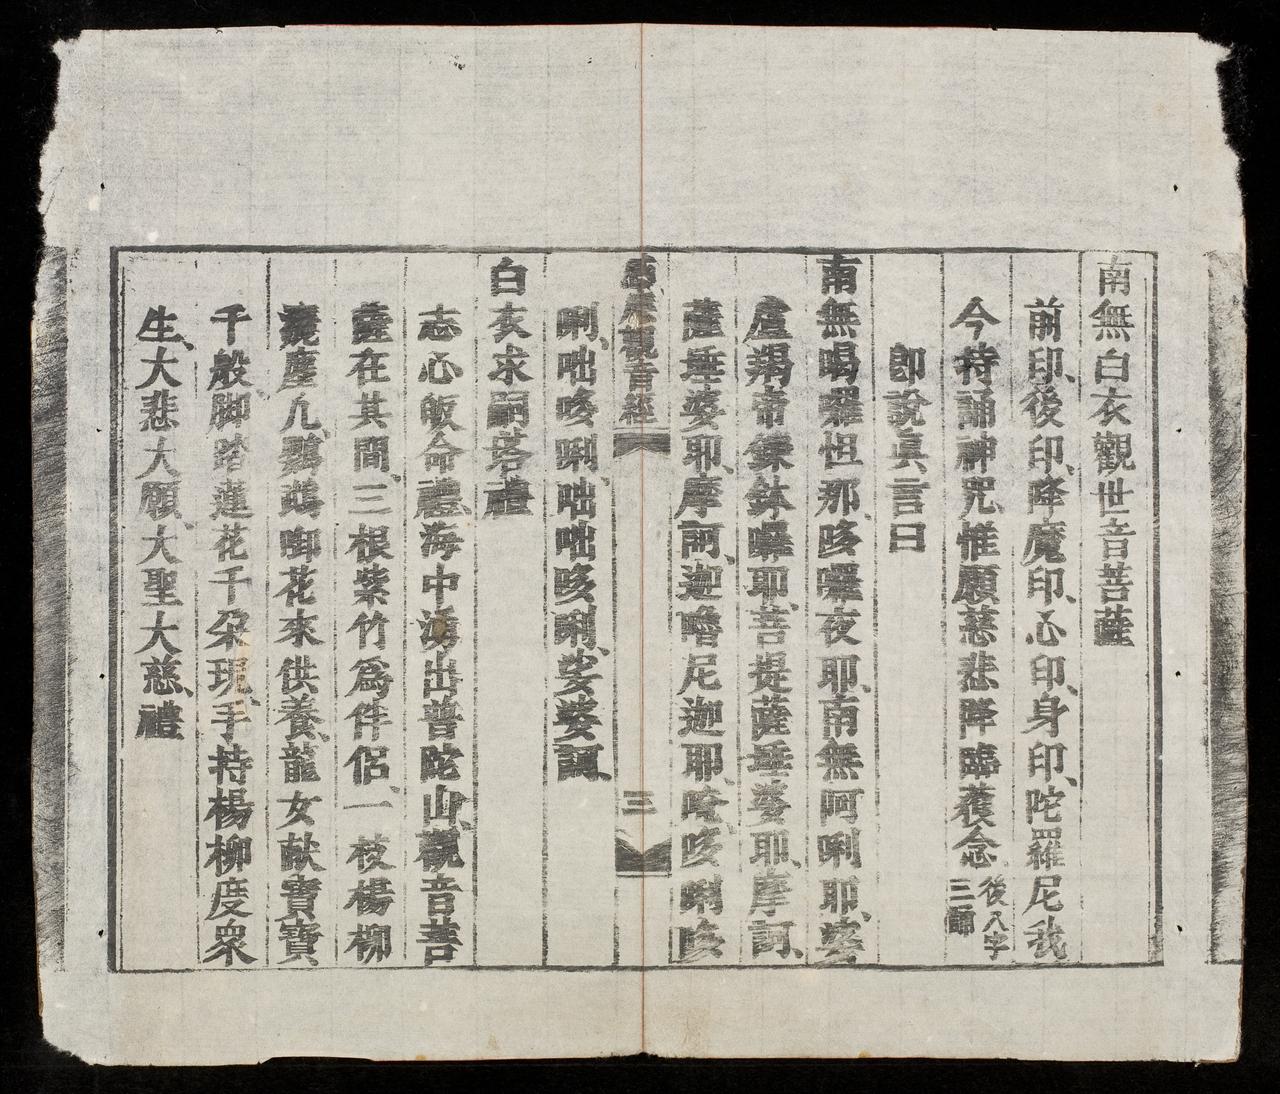 南無白衣觀世音菩薩
前印、後印、降魔印、心印、身印、陀羅尼我
今持誦神咒、惟願慈悲降臨護念後八字三師
卽說眞言曰
南無喝囉怛那、哆囉夜耶、南無呵唎耶、婆
盧羯帝鑠鉢囉耶、菩提薩埵婆耶、摩訶、
薩埵婆耶、摩訶、迦嚕尼迦耶、唵、哆唎哆
觀音經
三
唎、咄哆唎、咄咄哆唎、娑婆訶、
白衣求嗣塔禮
志心皈命禮、海中湧出普陀山、觀音菩
薩在其間、三根紫竹爲伴侶、一枝楊柳
塵凡、鸚鵡啣花來供養、龍女獻寶寶
千般、脚踏蓮花千朶現、手持楊柳度衆
生、大悲大願、大聖大慈、禮